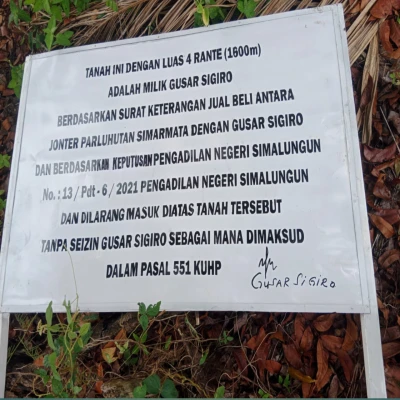 TANAH INI DENGAN LUAS 4 RANTE (1600m)
ADALAH MILIK GUSAR SIGIRO
BERDASARKAN SURAT KETERANGAN JUAL BELI ANTARA
JONTER PARLUHUTAN SIMARMATA DENGAN GUSAR SIGIRO
DAN BERDASARKAN KEPUTUSAN PENGADILAN NEGERI SIMALUNGUN
No. : 13 / Pdt - 6 / 2021 PENGADILAN NEGERI SIMALUNGUN
DAN DILARANG MASUK DIATAS TANAH TERSEBUT
TANPA SEIZIN GUSAR SIGIRO SEBAGAI MANA DIMAKSUD
DALAM PASAL 551 KUHP
GUSAR SIGIRO